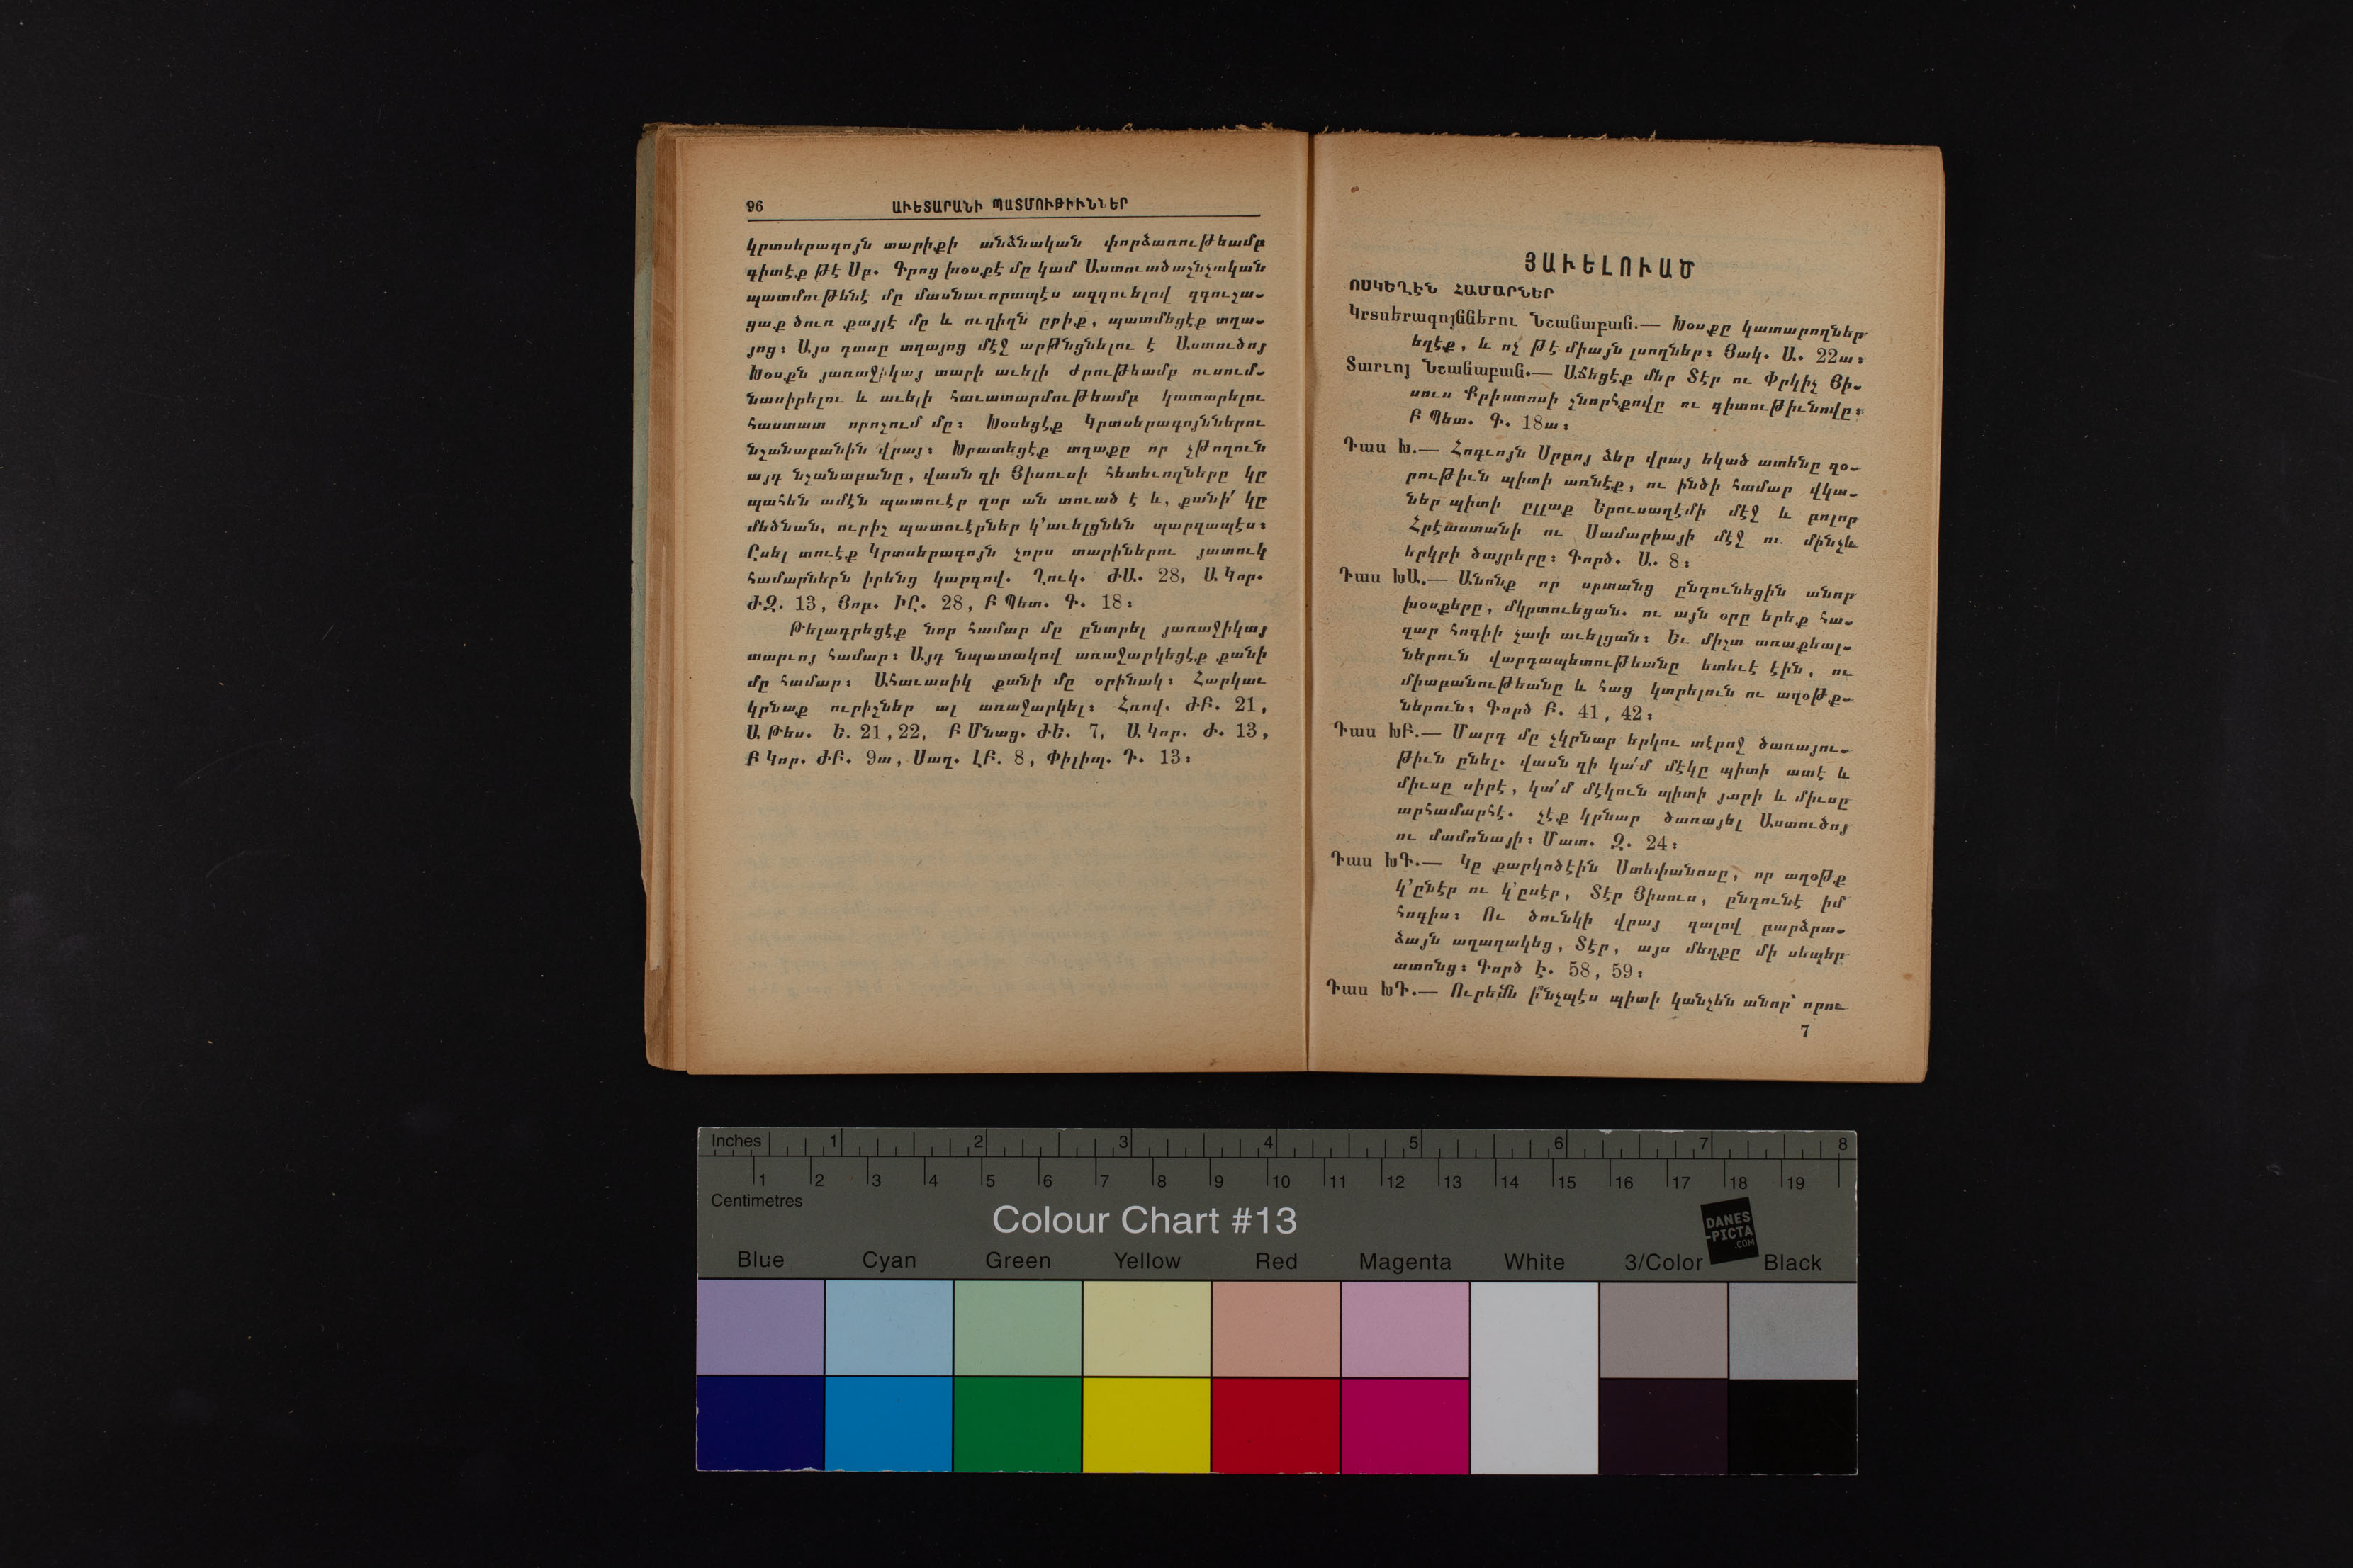 96 ԱՒԵՏԱՐԱՆԻ ՊԱՏՄՈՒԹԻՒՆՆԵՐ
կրտսերագոյն տարիքի անձնական փորձառութեամբ
գիտէք թէ Սբ. Գրոց խօսքէ մը կամ Աստուածաշնչական
պատմութենէ մը մասնաւորապէս ազդուելով զդուշա-
ցաք ծուռ քայլէ մը և ուղիղն ըրիք, պատմեցէք տղա-
յոց։ Այս դասը տղայոց մէջ արթնցնելու է Աստուծոյ
Խօսքն յառաջիկայ տարի աւելի ժրութեամբ ուսում-
նասիրելու և աւելի հաւատարմութեամբ կատարելու
հաստատ որոշում մը։ Խօսեցէք Կրտսերագոյններու
նշանաբանին վրայ։ Խրատեցէք տղաքը որ չթողուն
այդ նշանաբանը, վասն զի Յիսուսի հետեւողները կը
պահեն ամէն պատուէր զոր ան տուած է և, քանի՛ կը
մեծնան, ուրիչ պատուէրներ կ՚աւելցնեն պարզապէս։
Ըսել տուէք Կրտսերագոյն չորս տարիներու յատուկ
համարներն իրենց կարգով. Ղուկ. ԺԱ. 28, Ա Կոր.
ԺԶ. 13, Յոբ. ԻԸ. 28, Բ Պետ. Գ. 18։
Թելադրեցէք նոր համար մը ընտրել յառաջիկայ
տարւոյ համար։ Այդ նպատակով առաջարկեցէք քանի
մը համար։ Ահաւասիկ քանի մը օրինակ։ Հարկաւ
կրնաք ուրիչներ ալ առաջարկել։ Հռով. ԺԲ. 21,
Ա Թես. Ե. 21,22, Բ Մնաց. ԺԵ. 7, Ա Կոր. Ժ. 13,
Բ Կոր. ԺԲ. 9ա, Սաղ. ԼԲ. 8, Փիլիպ. Դ. 13։
ՅԱՒԵԼՈՒԱԾ
ՈՍԿԵՂԷՆ ՀԱՄԱՐՆԵՐ
Կրտսերագոյններու Նշանաբան.— Խօսքը կատարողներ
եղէք, և ոչ թէ միայն լսողներ։ Յակ. Ա. 22ա։
Տարւոյ Նշանաբան.— Աճեցէք մեր Տէր ու Փրկիչ Յի-
սուս Քրիստոսի շնորհքովը ու գիտութիւնովը։
Բ Պետ. Գ. 18ա։
Դաս Խ.— Հոգւոյն Սրբոյ ձեր վրայ եկած ատենը զօ-
րութիւն պիտի առնէք, ու ինծի համար վկա-
ներ պիտի ըլլաք Երուսաղէմի մէջ և բոլոր
Հրէաստանի ու Սամարիայի մէջ ու մինչև
երկրի ծայրերը։ Գործ. Ա. 8։
Դաս ԽԱ.— Անոնք որ սրտանց ընդունեցին անոր
խօսքերը, մկրտուեցան. ու այն օրը երեք հա-
զար հոգիի չափ աւելցան։ Եւ միշտ առաքեալ-
ներուն վարդապետութեանը ետեւէ էին, ու
միաբանութեանը և հաց կտրելուն ու աղօթք-
ներուն։ Գործ Բ. 41, 42։
Դաս ԽԲ.— Մարդ մը չկրնար երկու տէրոջ ծառայու-
թիւն ընել. վասն զի կա՛մ մէկը պիտի ատէ և
միւսը սիրէ, կա՛մ մէկուն պիտի յարի և միւսը
արհամարհէ. չէք կրնար ծառայել Աստուծոյ
ու մամոնայի։ Մատ. Զ. 24։
Դաս ԽԳ.— Կը քարկոծէին Ստեփանոսը, որ աղօթք
կ՚ընէր ու կ՚ըսէր, Տէր Յիսուս, ընդունէ իմ
հոգիս։ Ու ծունկի վրայ գալով բարձրա-
ձայն աղաղակեց, Տէր, այս մեղքը մի սեպեր
ատոնց։ Գործ Է. 58, 59։
Դաս ԽԴ.— Ուրեմն ի՞նչպէս պիտի կանչեն անոր՝ որու
7
Inches 1 2 3 4 5 6 7 8
1 2 3 4 5 6 7 8 9 10 11 12 13 14 15 16 17 18 19
Centimetres
Colour Chart #13
DANES
-PICTA
.COM
Blue Cyan Green Yellow Red Magenta White 3/Color Black